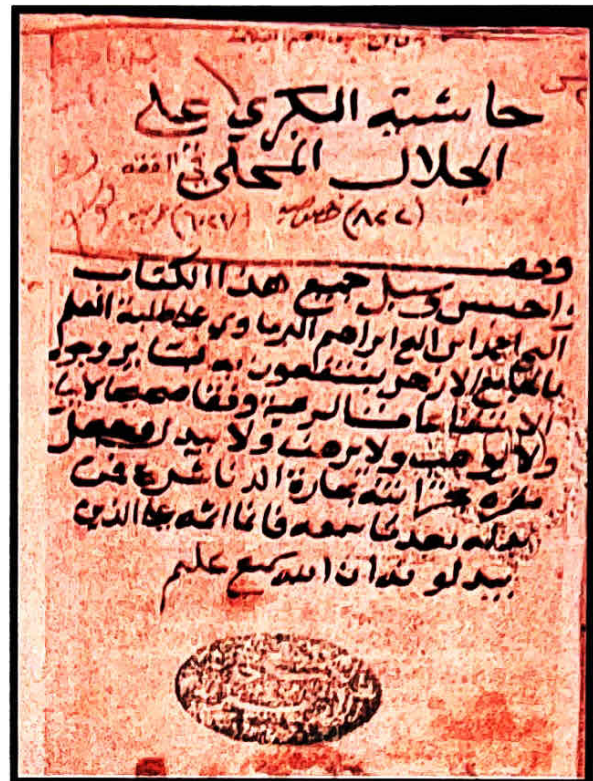 حاشية البكري على
الجلال المحلى في الفقه
(٨٢٧) خصوصية (٦٠٢٩)
وقف
واحبس وسبل جميع هذا الكتاب
الحج احمد ابن الحج ابراهيم البرماوي على طلبة العلم
بالجامع الازهر ينتفعون به
الانتفاعات الشرعية وقفا صحيحا لا يباع
ولا يوهب ولا يرهن ولا يبدل
مقره بخزانته بحارة الدناشرى فمن
بدله بعدما سمعه فانما اثمه على الذين
يبدلونه ان الله سميع عليم